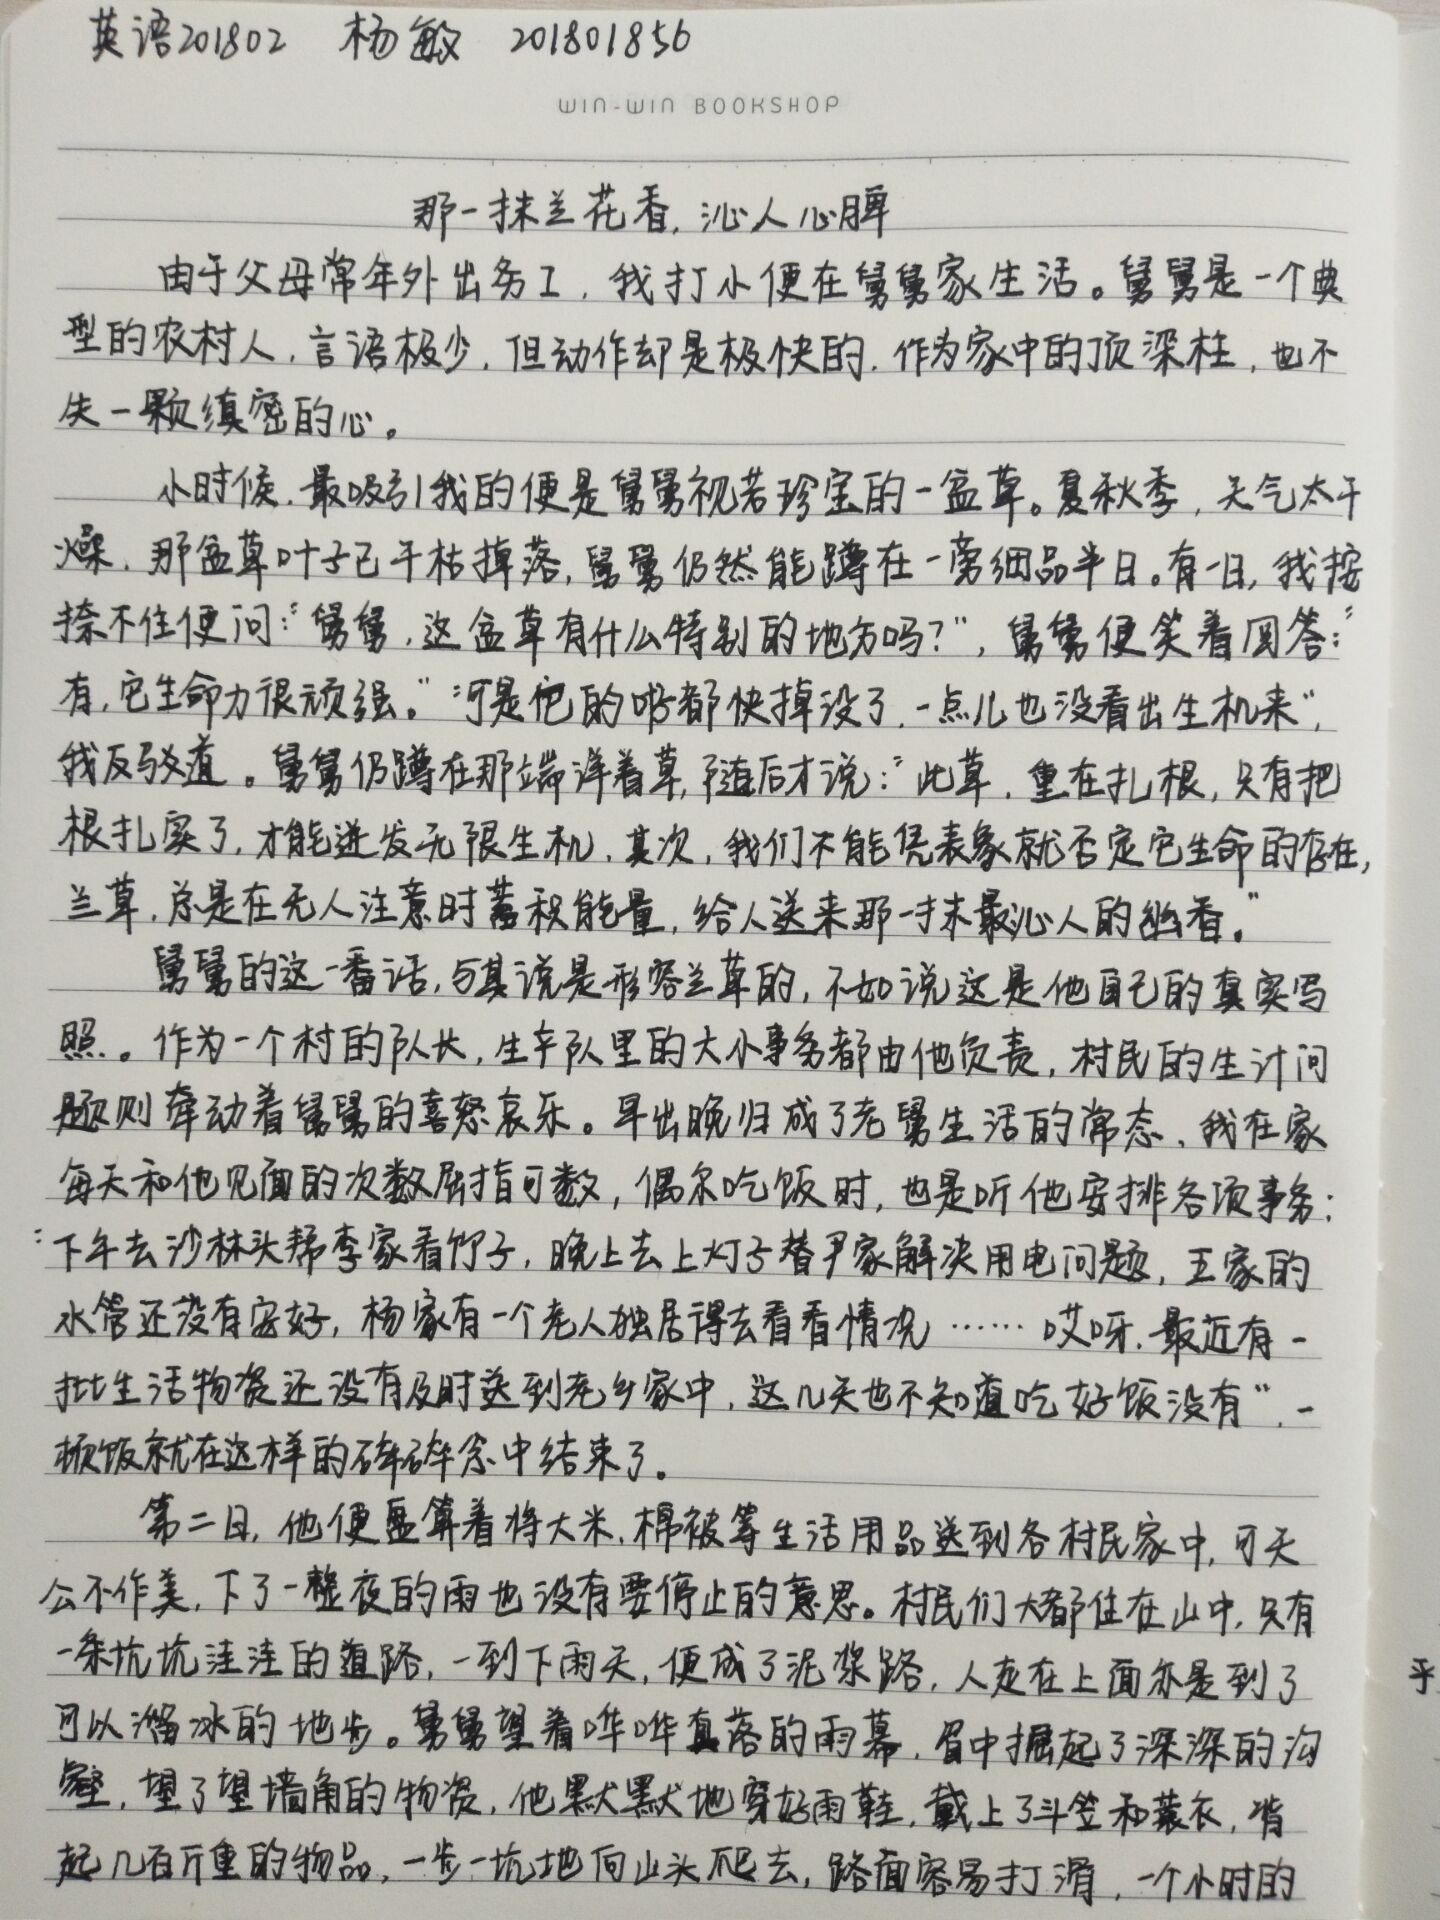 英语201802 杨敏 201801856
WIN-WIN BOOKSHOP
那一抹兰花香,沁人心脾
由于父母常年外出务工,我打小便在舅舅家生活。舅舅是一个典
型的农村人,言语极少,但动作却是极快的,作为家中的顶深柱,也不
失一颗缜密的心。
小时候,最吸引我的便是舅舅视若珍宝的一盆草。夏秋季,天气太干
燥,那盆草叶子已干枯掉落,舅舅仍然能蹲在一旁细品半日。有一日,我按
捺不住便问:“舅舅,这盆草有什么特别的地方吗?”,舅舅便笑着回答:“
有,它生命力很顽强。”“可是它的叶都快掉没了,一点儿也没看出生机来”,
我反驳道。舅舅仍蹲在那端详着草,随后才说:“此草,重在扎根,只有把
根扎实了,才能迸发无限生机,其次,我们不能凭表象就否定它生命的存在,
兰草,总是在无人注意时蓄积能量,给人送来那一抹最沁人的幽香。”
舅舅的这一番话,与其说是形容兰草的,不如说这是他自己的真实写
照。作为一个村的队长,生产队里的大小事务都由他负责,村民的生计问
题则牵动着舅舅的喜怒哀乐。早出晚归成了老舅生活的常态,我在家
每天和他见面的次数屈指可数,偶尔吃饭时,也是听他安排各项事务:
“下午去沙林头帮李家看竹子,晚上去上灯子替尹家解决用电问题,王家的
水管还没有安好,杨家有一个老人独居得去看看情况……哎呀,最近有一
批生活物资还没有及时送到老乡家中,这几天也不知道吃好饭没有”,一
顿饭就在这样的碎碎念中结束了。
第二日,他便盘算着将大米,棉被等生活用品送到各村民家中,可天
公不作美,下了一整夜的雨也没有要停止的意思。村民们大都住在山中,只有
一条坑坑洼洼的道路,一到下雨天,便成了泥浆路,人走在上面亦是到了
可以溜冰的地步。舅舅望着哗哗直落的雨幕,眉中掘起了深深的沟
壑,望了望墙角的物资,他默默地穿好雨鞋,戴上了斗笠和蓑衣,背
起几百斤重的物品,一步一坑地向山头爬去,路面容易打滑,一个小时的
乎